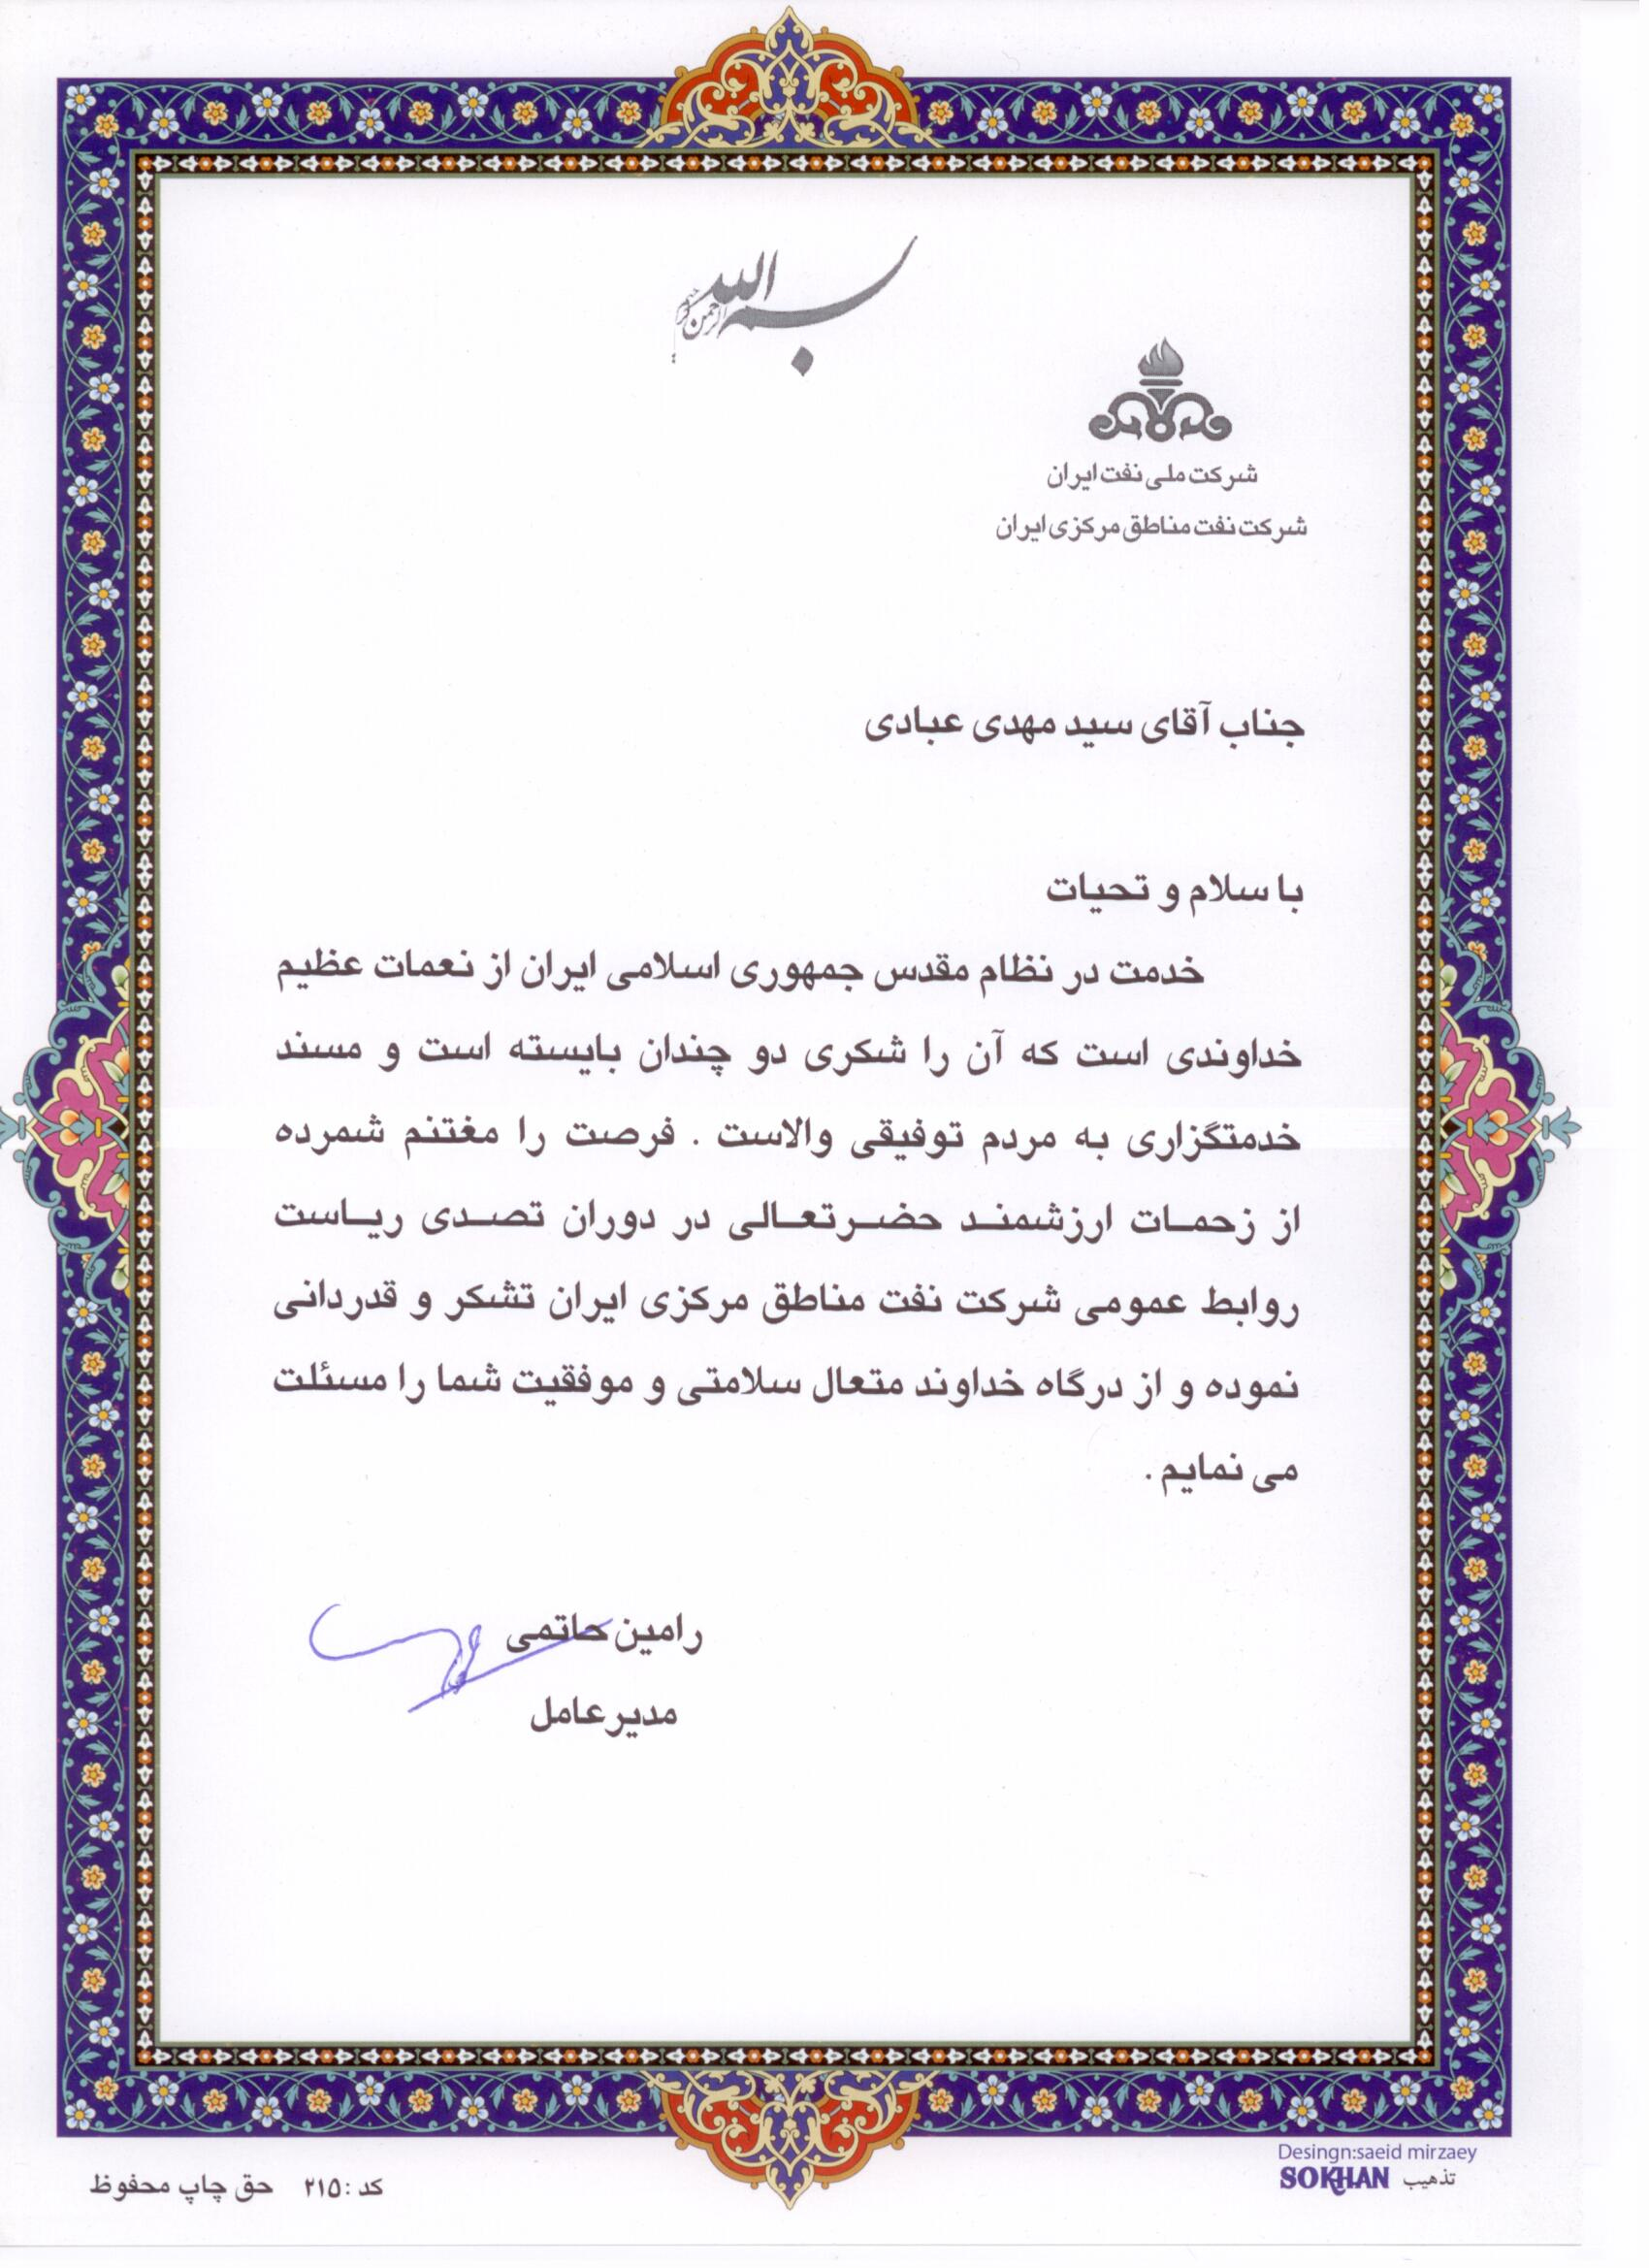 بسم الله الرحمن الرحیم
شرکت ملی نفت ایران
شرکت نفت مناطق مرکزی ایران
جناب آقای سید مهدی عبادی
با سلام و تحیات
خدمت در نظام مقدس جمهوری اسلامی ایران از نعمات عظیم
خداوندی است که آن را شکری دو چندان بایسته است و مسند
خدمتگزاری به مردم توفیقی والاست . فرصت را مغتنم شمرده
از زحمات ارزشمند حضرتعالی در دوران تصدی ریاست
روابط عمومی شرکت نفت مناطق مرکزی ایران تشکر و قدردانی
نموده و از درگاه خداوند متعال سلامتی و موفقیت شما را مسئلت
می نمایم .
رامین حاتمی
مدیر عامل
Desingn:saeid mirzaey
تذهیب SOKHAN
کد : ۲۱۵ حق چاپ محفوظ